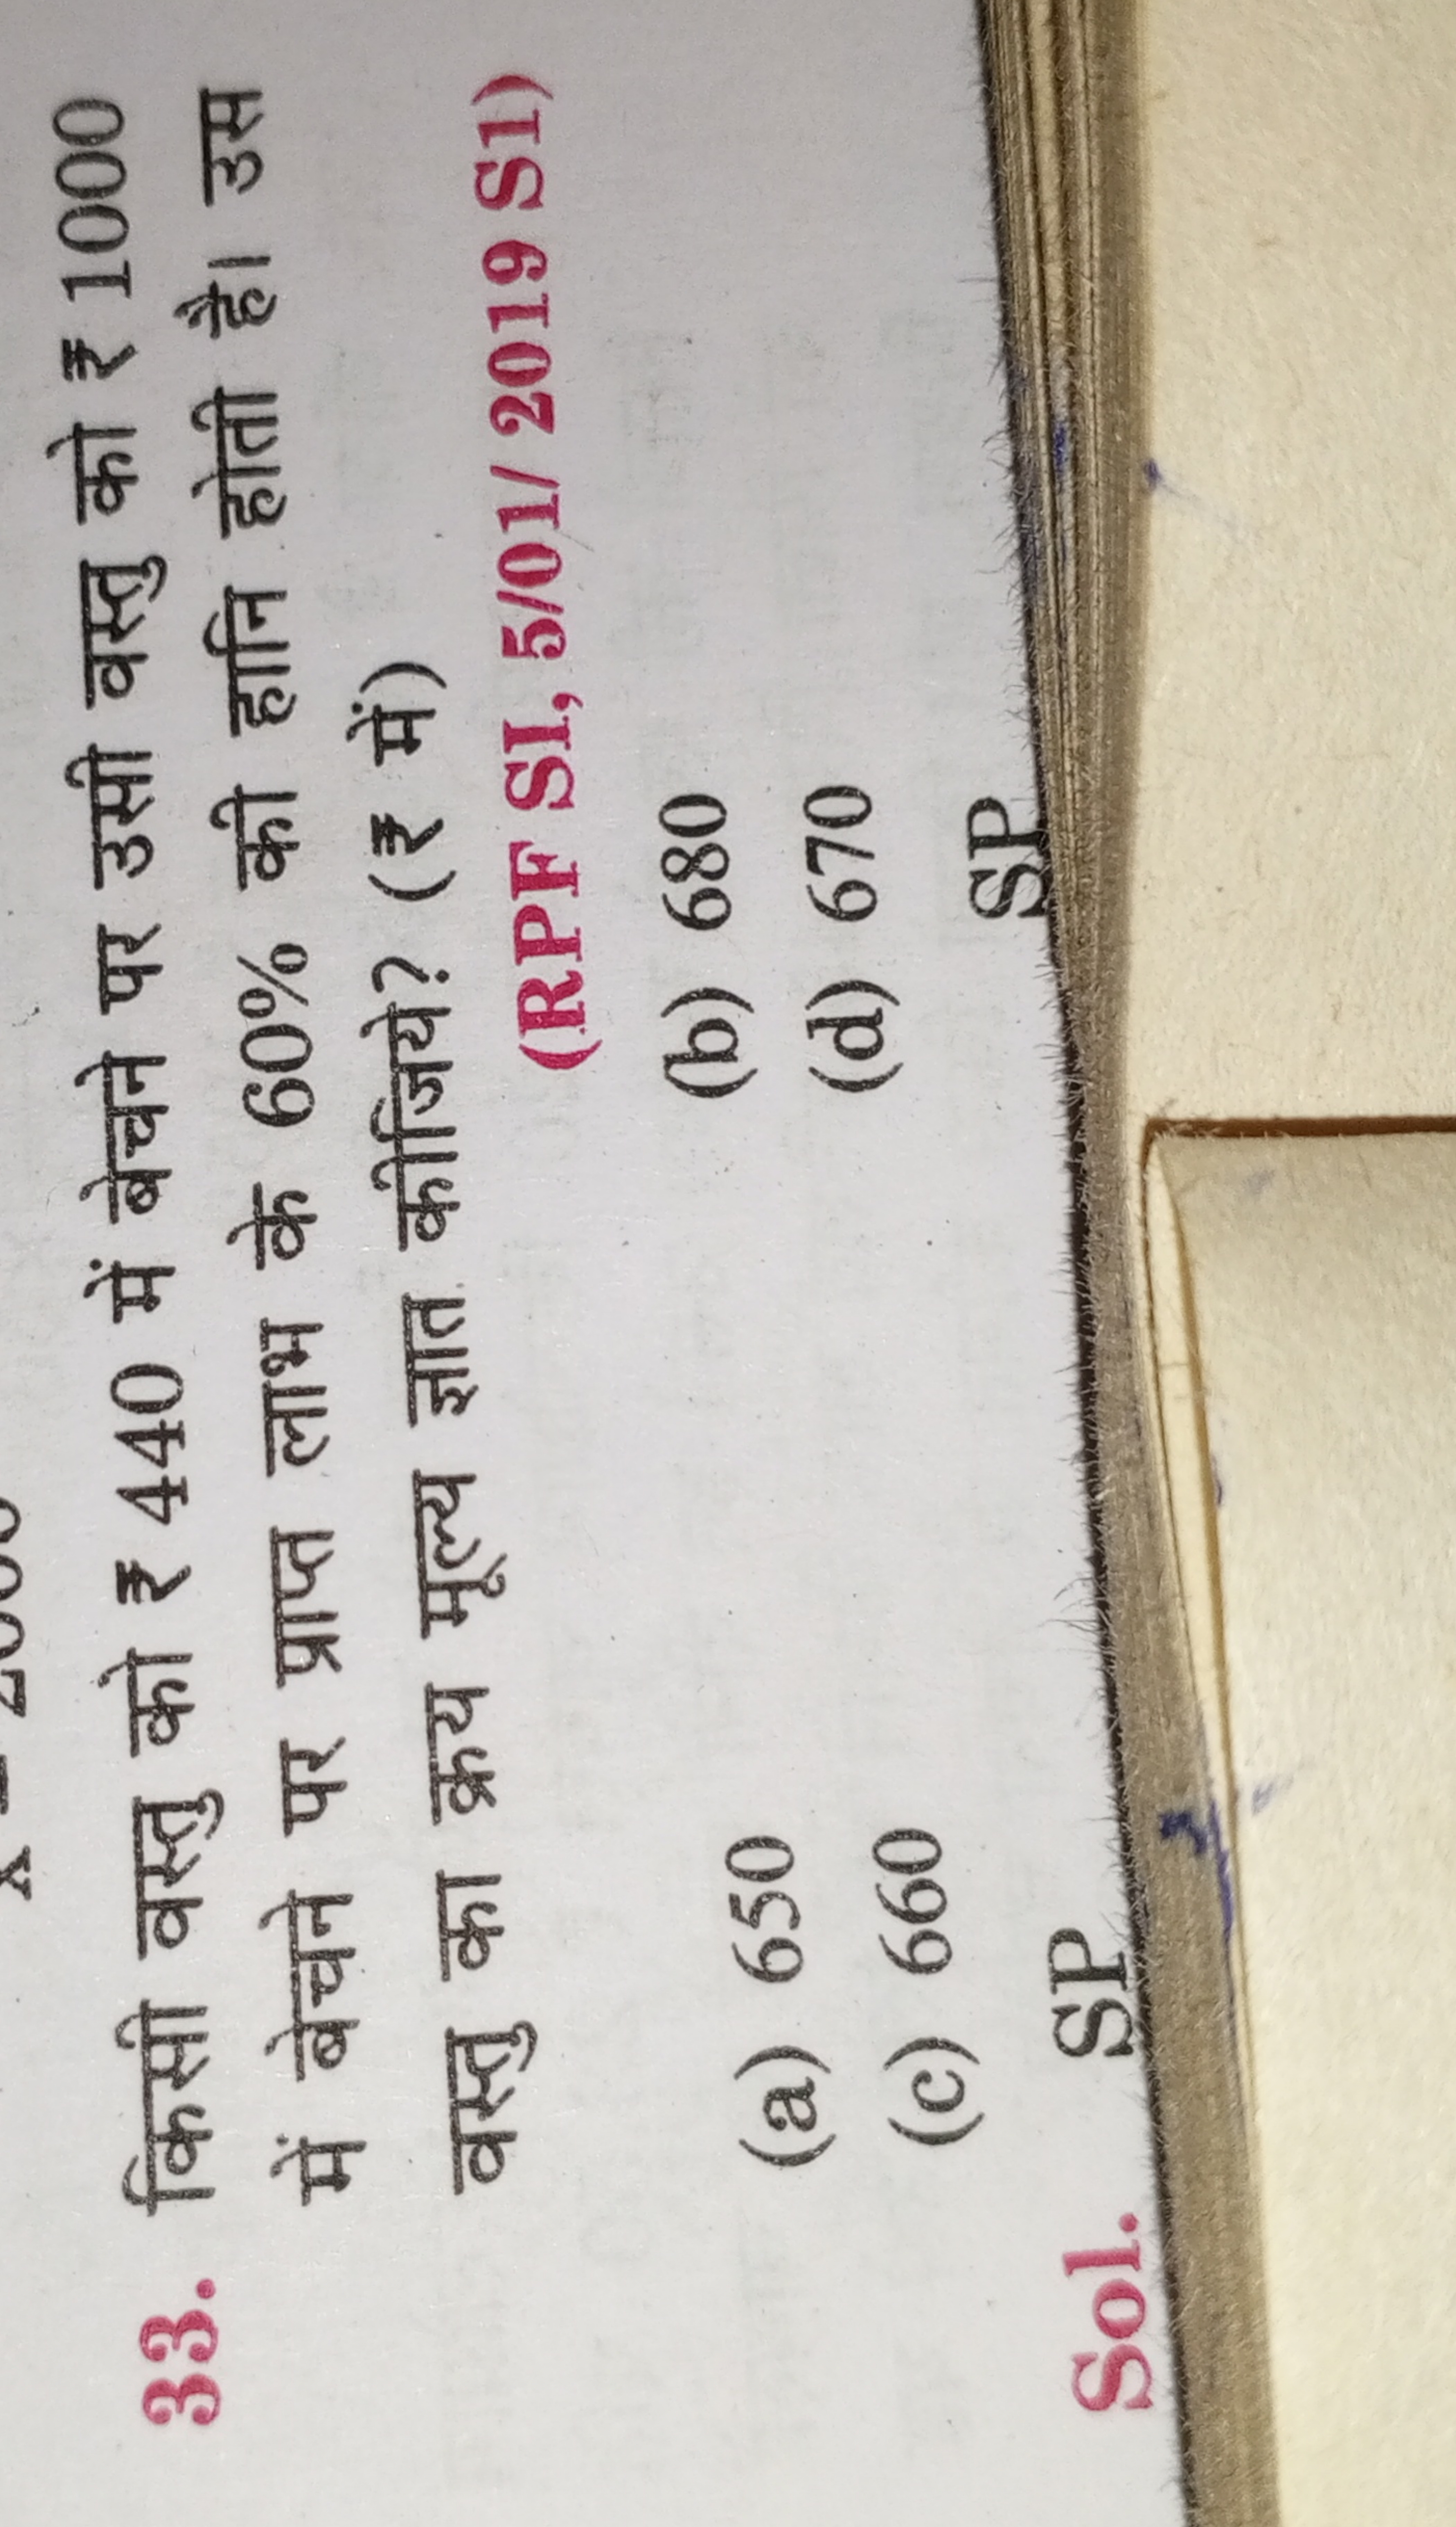 33. किसी वस्तु को ₹ 440 में बेचने पर उसी वस्तु को ₹ 1000
में बेचने पर प्राप्त लाभ के 60% की हानि होती है। उस
वस्तु का क्रय मूल्य ज्ञात कीजिये? (₹ में)
(RPF SI, 5/01/ 2019 S1)
(a) 650 (b) 680
(c) 660 (d) 670
Sol. SP SP